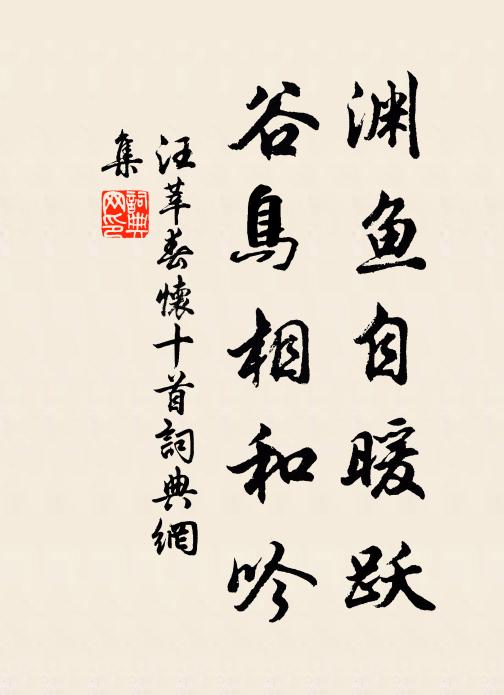 渊鱼自暖跃
谷鸟相和吟
汪莘春懷十首詞典網
集
詞典网印